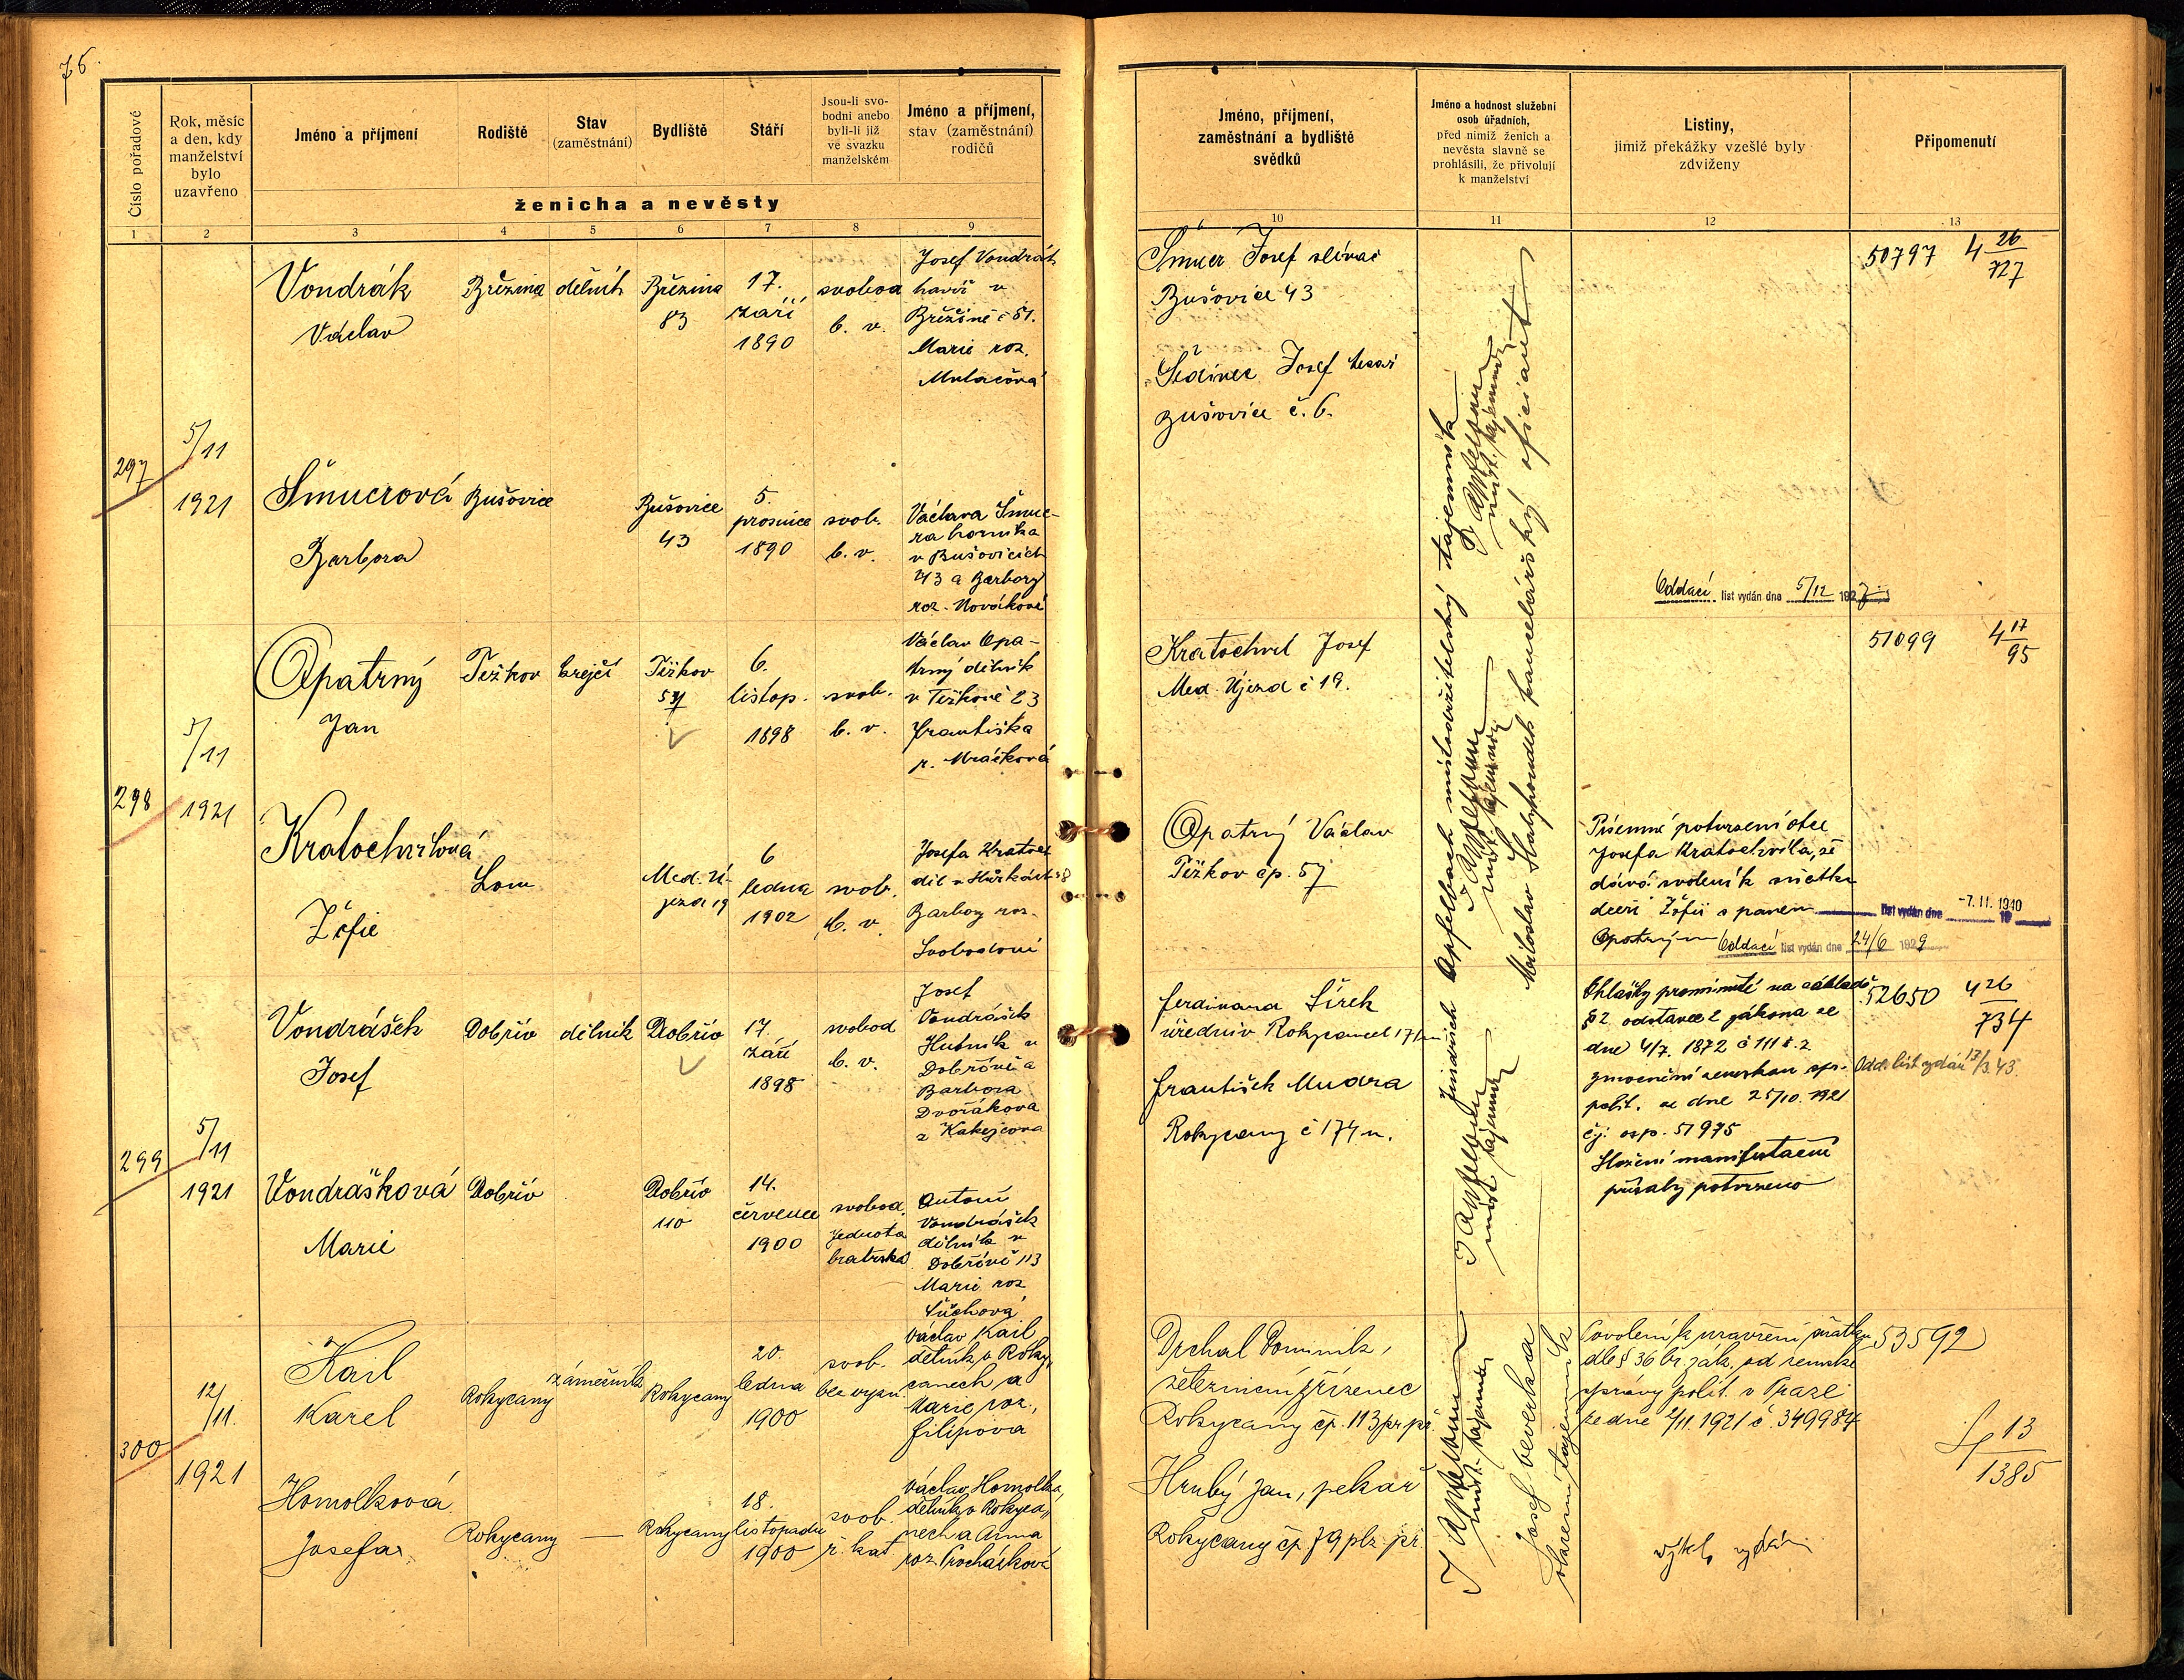 76.
Číslo pořadové
Rok, měsíc
a den, kdy
manželství
bylo
uzavřeno
Jméno a příjmení
Rodiště
Stav
(zaměstnání)
Bydliště
Stáří
Jsou-li svo-
bodni anebo
byli-li již
ve svazku
manželském
Jméno a příjmení,
stav (zaměstnání)
rodičů
ženicha a nevěsty
1 2 3 4 5 6 7 8 9
Jméno, příjmení,
zaměstnání a bydliště
svědků
Jméno a hodnost služební
osob úřadních,
před nimiž ženich a
nevěsta slavně se
prohlásili, že přivolují
k manželství
Listiny,
jimiž překážky vzešlé byly
zdviženy
Připomenutí
10 11 12 13
297
5/11
1921
Vondrák
Václav
Březina
dělník
Březina
83
17.
září
1890
svobod
b. v.
Josef Vondrák
havíř v
Březině č 51.
Marie roz.
Šmucrová
Barbora
Bušovice
Bušovice
43
5.
prosince
1890
svob.
b. v.
Václava Šmuc-
ra horníka
v Bušovicích
43 a Barbory
roz. Novákové
Šmucr Josef slévač
Bušovice 43
Josef tesař
Bušovice č. 6.
Oddací list vydán dne 5/12 1927
50797
4 26/727
298
5/11
1921
Opatrný
Jan
Těškov
krejčí
Těškov
57
6.
listop.
1898
svob.
b. v.
Václav Opa-
trný dělník
v Těškově 23
Františka
r. Mráčková
Kratochvilová
Žofie
Lom
Med. Ú-
jezd 19
6
ledna
1902
svob.
b. v.
Josefa Kratoch
Barbory roz.
Svobodové
Kratochvil Josef
Med. Újezd č 19.
Opatrný Václav
Těškov čp. 57
Písemné potvrzení otce
Josefa Kratochvíla, že
dává svolení k sňatku
dceři Žofii s panem
Opatrným
Oddací list vydán dne 24/6 1929
list vydán dne -7. II. 1940
51099
4 17/95
299
5/11
1921
Vondrášek
Josef
Dobřív
dělník
Dobřív
17.
září
1898
svobod
b. v.
Josef
Vondrášek
Hutník v
Dobřívě a
Barbora
Dvořákova
z Kakejcova
Vondrášková
Marie
Dobřív
Dobřív
110
14.
července
1900
svobod.
Jednota
bratrská
Antonín
Vondrášek
dělník v
Dobřívě 113
Marie roz
Ferdinand Šírek
úředník Rokycanech 171
František Mudra
Rokycany č 174 n.
Ohlášky prominuté na základě
§ 2 odstavce 2 zákona ze
dne 4/7. 1872 č 111 ř. z
zmocnění zemskou spr.
polit. ze dne 25/10. 1921
čj: osp. 51975
Složení manifestační
přísahy potvrzeno
52650
4 26/734
Odd. list vydán 13/3. 43.
300
12/11.
1921
Kail
Karel
Rokycany
zámečník
Rokycany
20.
ledna
1900
svob.
bez vyzn.
Václav Kail,
dělník v Roky-
canech a
Marie roz.,
Filipova
Homolková
Josefa
Rokycany
—
Rokycany
18.
listopadu
1900
svob.
ř. kat
Václav Homolka,
dělník v Rokyca-
nech a Anna
roz. Procházková
Drchal Dominik,
železniční zřízenec
Rokycany čp. 113 pr. př.
Hrubý Jan, pekař
Rokycany čp. 79 plz. př.
Povolení k uzavření sňatku
dle § 36 br. zák. od zemské
správy polit. v Praze
ze dne 2/11. 1921 č. 349984
výtah vydán
53592
13/1385
Jindřich Apfelbach místodržitelský tajemník
Miloslav kancelářský oficiant
J Apfelbach
míst. tajemník
J Apfelbach
míst. tajemník
J Apfelbach
míst. tajemník
J Apfelbach
míst. tajemník
Josef Beverka
tajemník